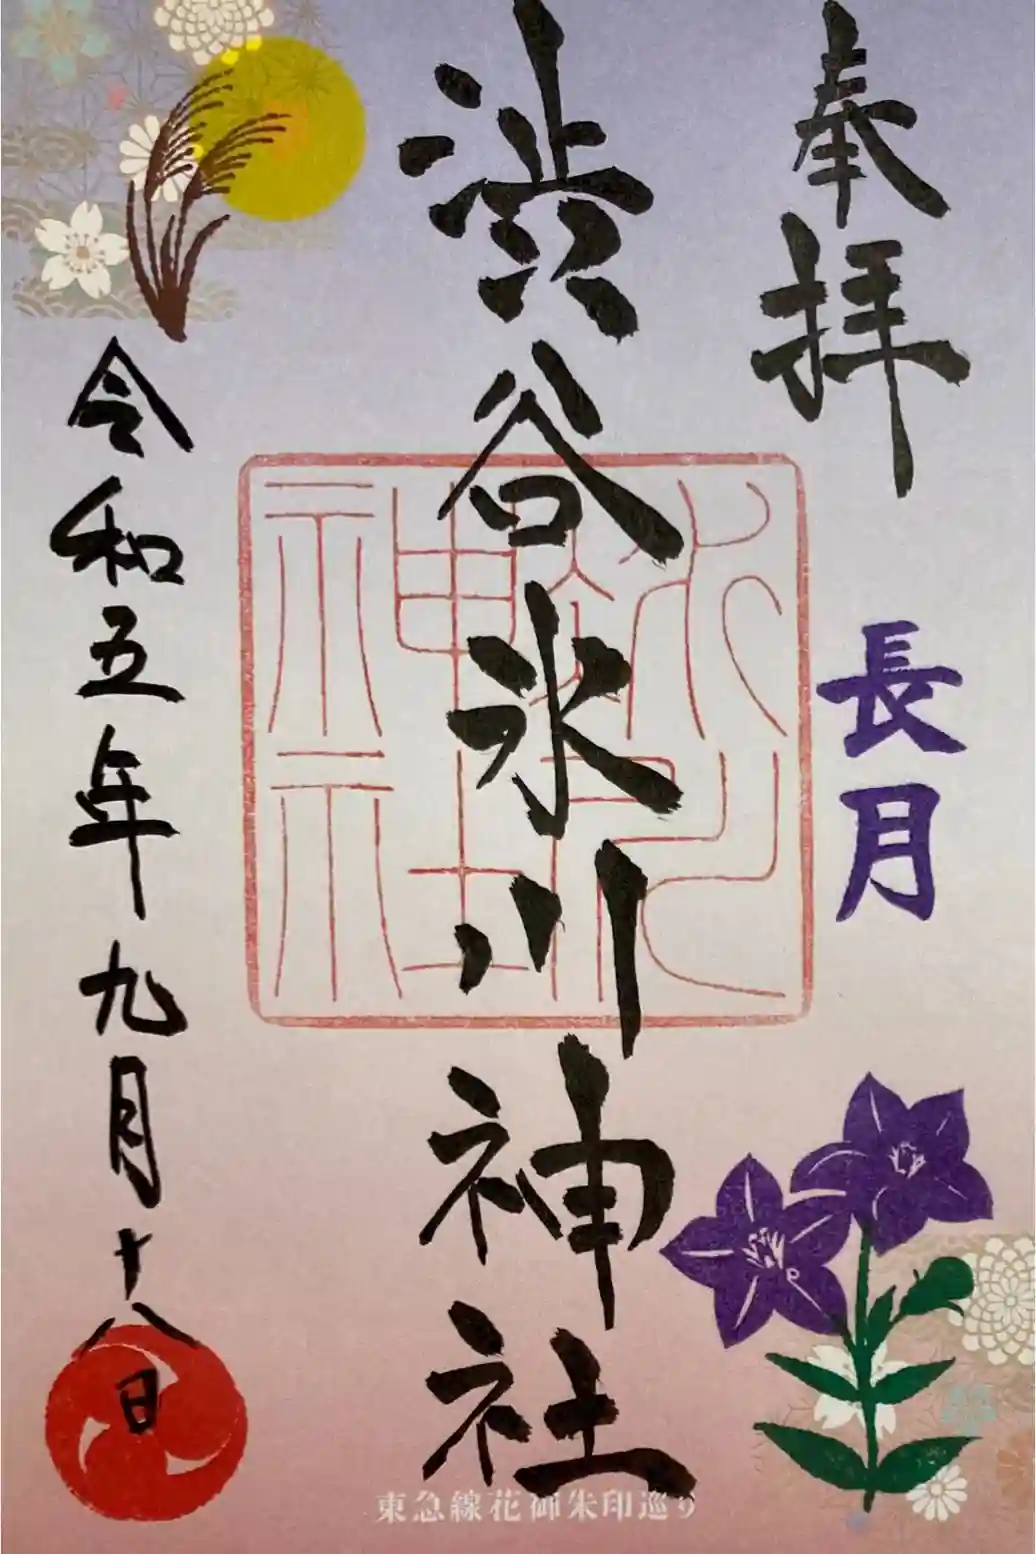 奉拝
長月
渋谷氷川神社
氷川
神社
令和五年九月十八日
東急線花御朱印巡り